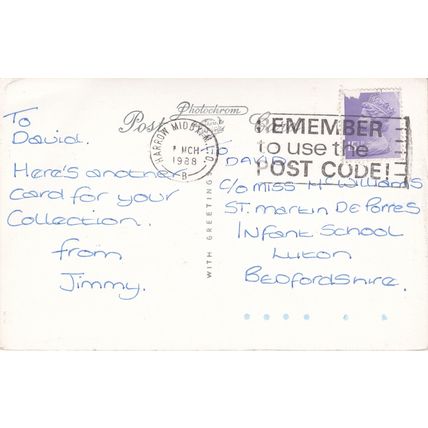 Photochrom
Post Card
HARROW MIDDX
MCH
1988
B
REMEMBER
to use the
POST CODE!
WITH GREETING
To
David.
Here's another
Card for your
Collection.
from
Jimmy.
DAVID
c/o MISS Mc WILLIAMS
ST. Martin De Porres
INFANT School
Luton
BEDFORDSHIRE.